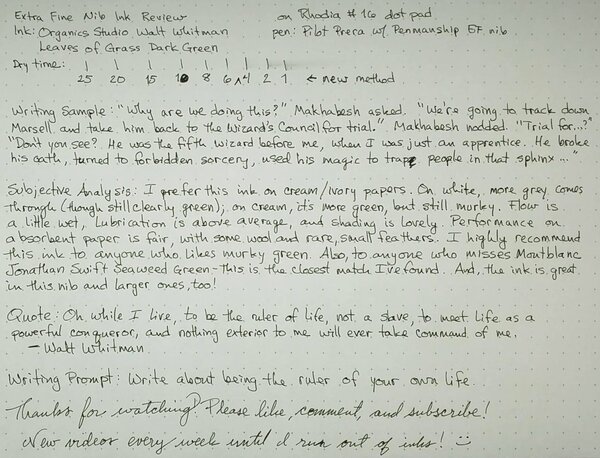 Extra Fine Nib Ink Review on Rhodia #16 dot pad
Ink: Organics Studio Walt Whitman pen: Pilot Prera w/ Penmanship EF nib
Leaves of Grass Dark Green
Dry time: | | | | | | | | |
25 20 15 10 8 6 4 2 1 ← new method
Writing Sample: "Why are we doing this?" Makhabesh asked. "We're going to track down
Marsell and take him back to the Wizard's Council for trial." Makhabesh nodded. "Trial for...?"
"Don't you see? He was the fifth wizard before me, when I was just an apprentice. He broke
his oath, turned to forbidden sorcery, used his magic to trap people in that sphinx..."
Subjective Analysis: I prefer this ink on cream/ivory papers. On white, more grey comes
through (though still clearly green); on cream, it's more green, but still murky. Flow is
a little wet, lubrication is above average, and shading is lovely. Performance on
absorbent paper is fair, with some wool and rare, small feathers. I highly recommend
this ink to anyone who likes murky green. Also, to anyone who misses Montblanc
Jonathan Swift Seaweed Green - This is the closest match I've found. And, the ink is great
in this nib and larger ones, too!
Quote: Oh while I live, to be the ruler of life, not a slave, to meet life as a
powerful conqueror, and nothing exterior to me will ever take command of me.
- Walt Whitman
Writing Prompt: Write about being the ruler of your own life.
Thanks for watching! Please like, comment, and subscribe!
New videos every week until I run out of inks! :)